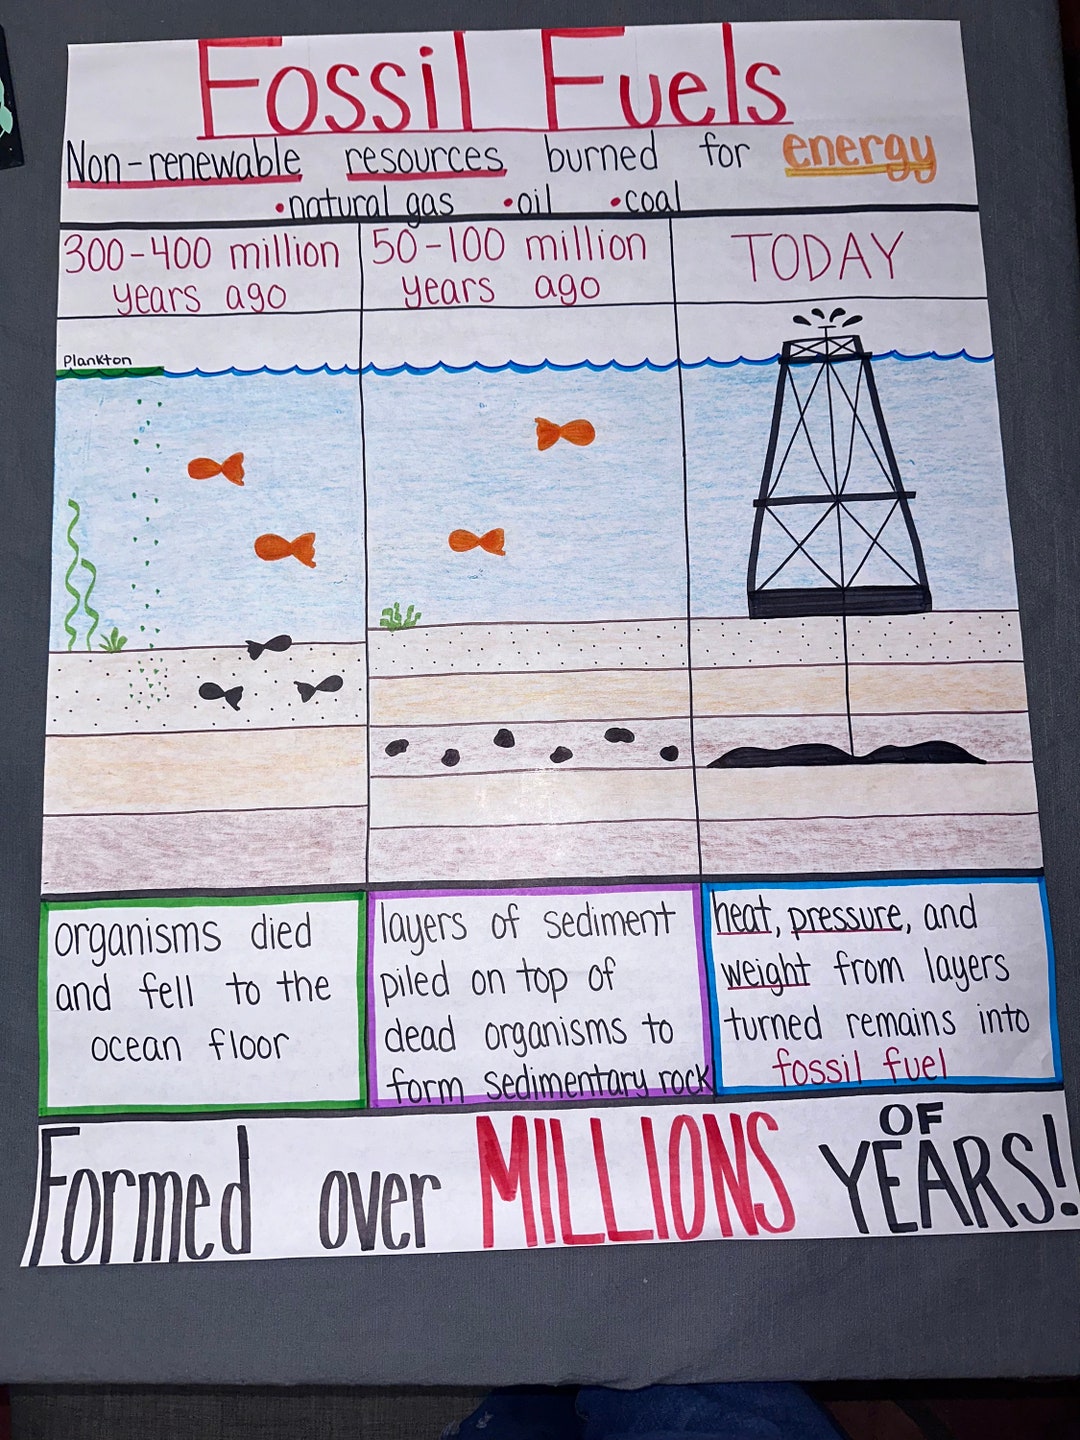 Fossil Fuels
Non-renewable resources burned for energy
•natural gas •oil •coal
300-400 million
years ago
50-100 million
years ago
TODAY
Plankton
organisms died
and fell to the
ocean floor
layers of sediment
piled on top of
dead organisms to
form sedimentary rock
heat, pressure, and
weight from layers
turned remains into
fossil fuel
Formed over MILLIONS OF YEARS!